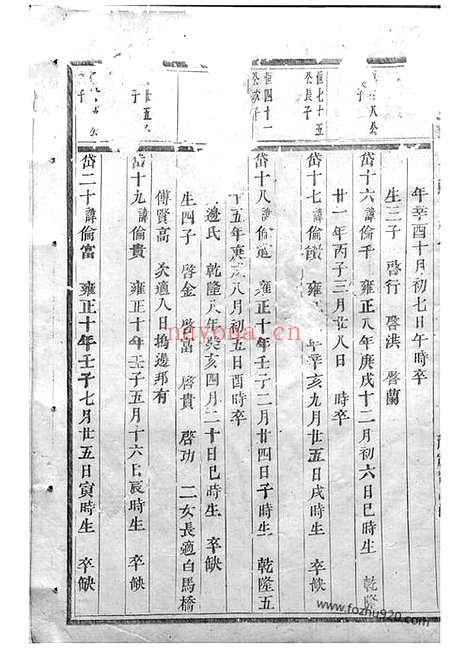 年辛酉十月初七日午時卒
生三子 啓行 啓洪 啓蘭
公
子
岱十六諱倫千 雍正八年庚戌十二月初六日巳時生 乾隆
廿一年丙子三月廿八日 時卒
恆七十五
公長子
岱十七諱倫 雍 辛亥九月廿五日戌時生 卒缺
恆四十一
公次子
岱十八諱倫 雍正十年壬子二月廿四日子時生 乾隆五
十五年庚 八月初五日酉時卒
邊氏 乾隆八年癸亥四月二十日巳時生 卒缺
生四子 啓金 啓富 啓貴 啓功 二女長適白馬橋
傅賢高 次適八日塢邊邦有
廿五
子
岱十九諱倫貴 雍正十年壬子五月十六日辰時生 卒缺
公
子
岱二十諱倫富 雍正十年壬子七月廿五日寅時生 卒缺
nayona.cn
www.fozhu920.com